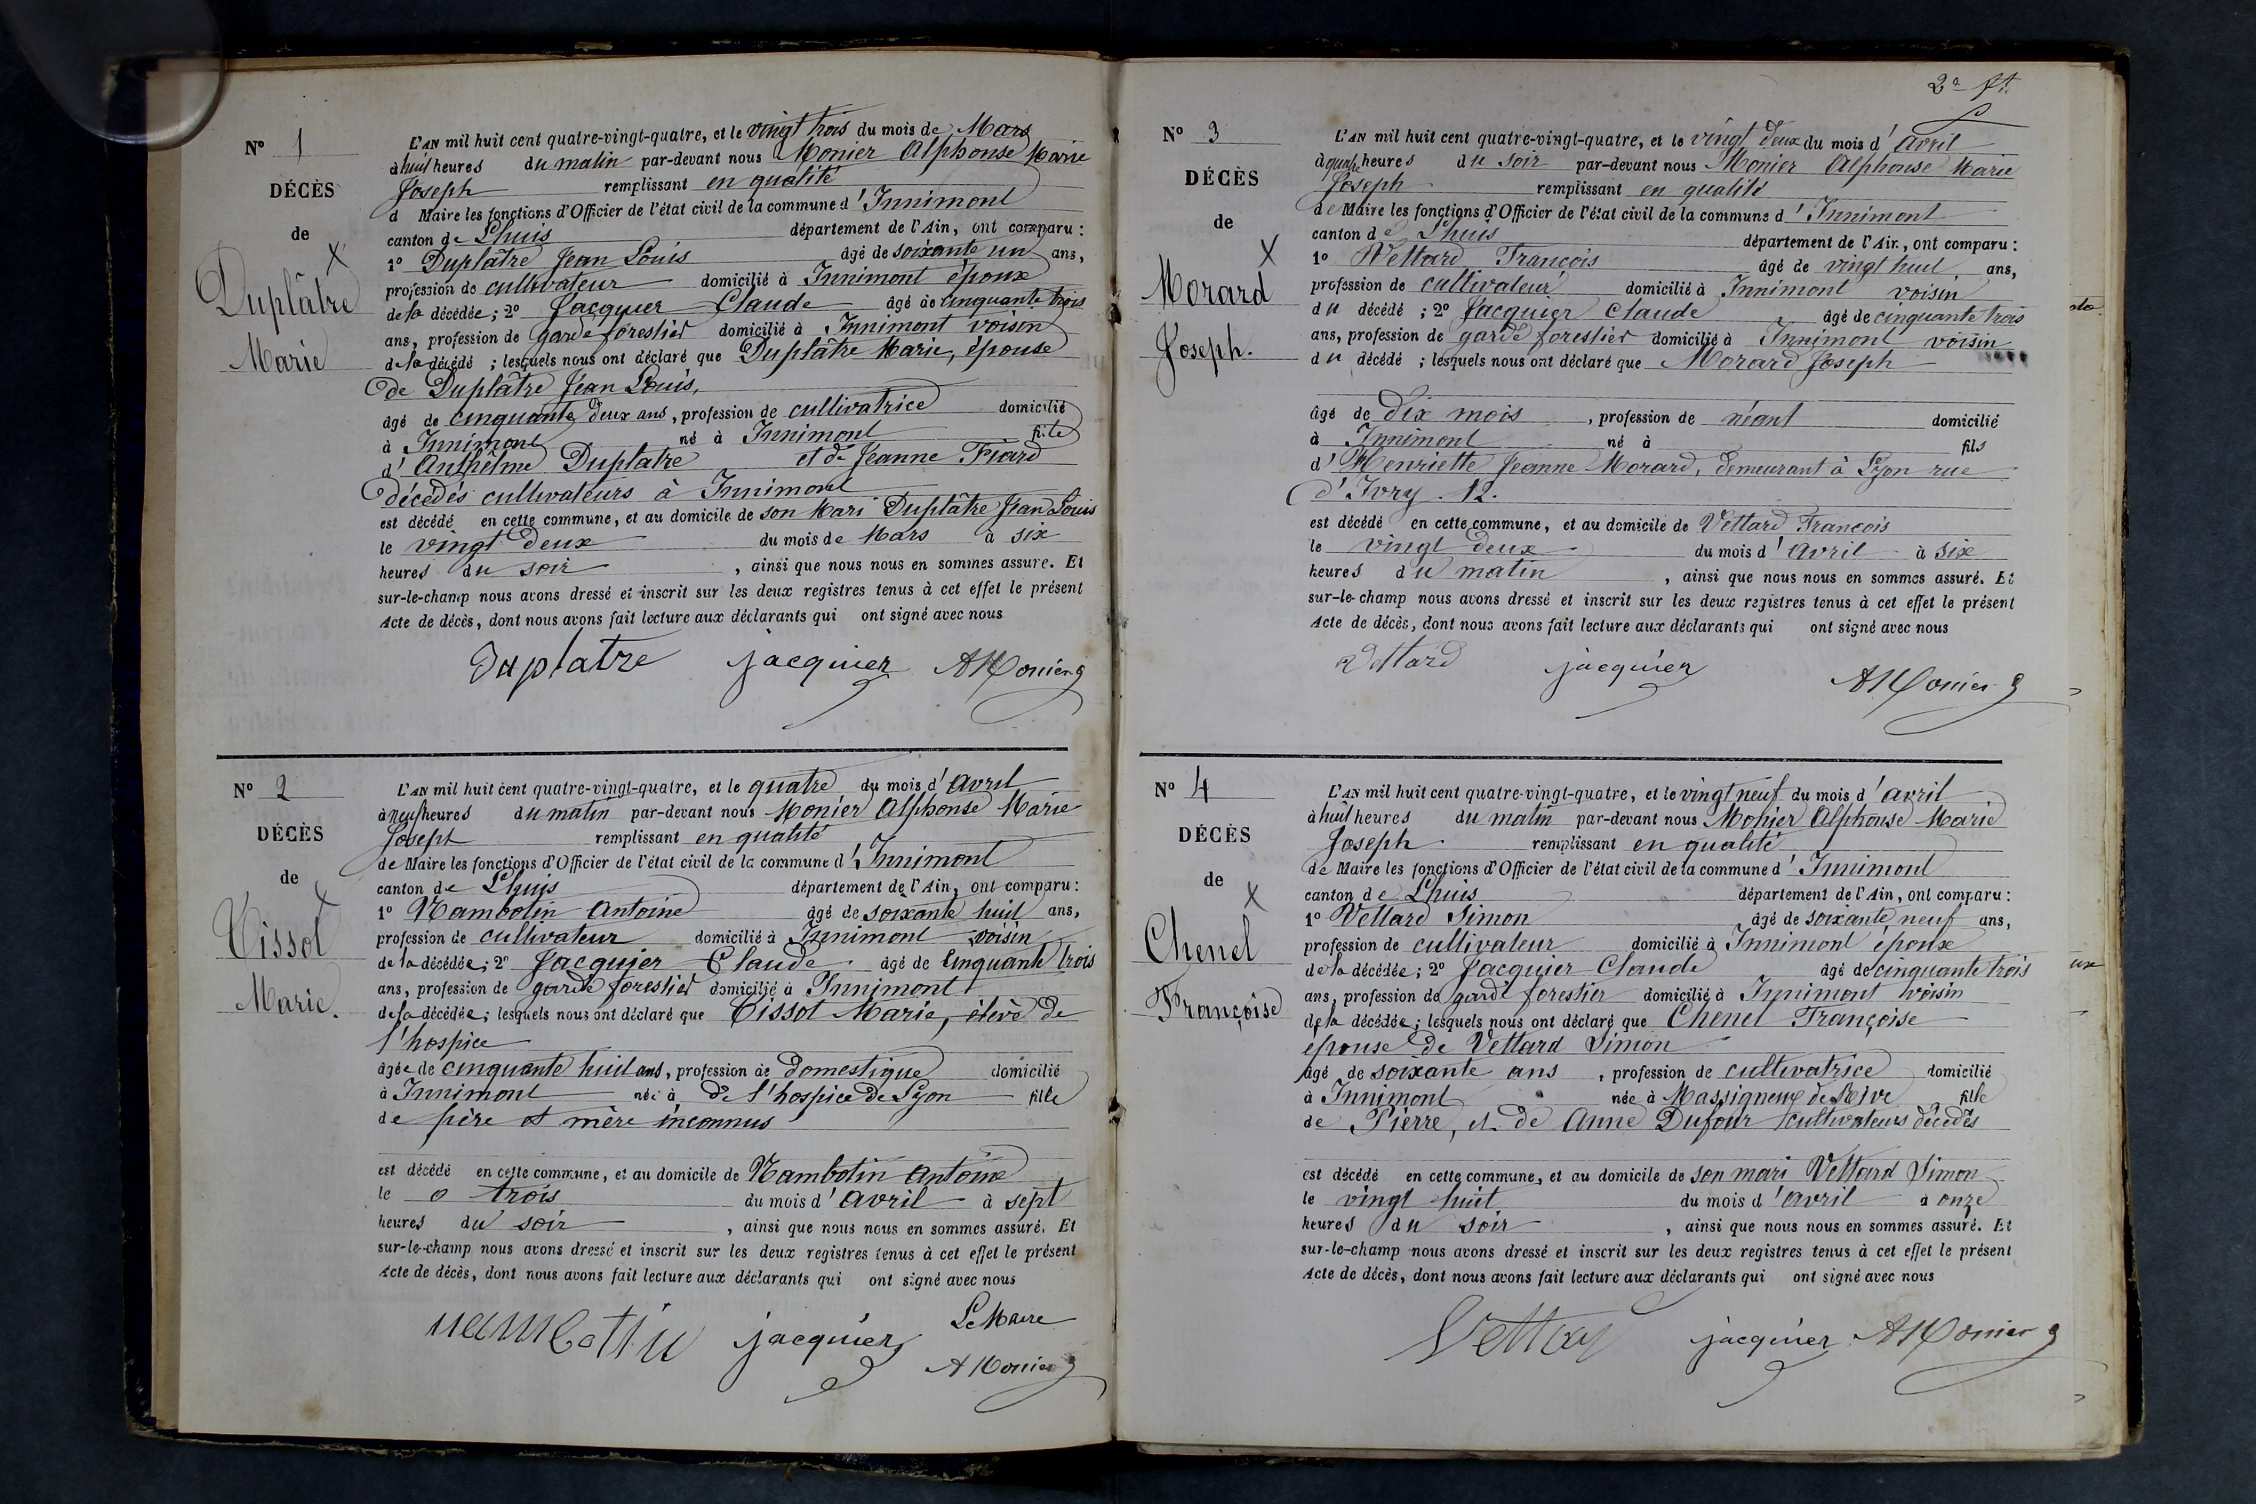 N° 1
DÉCÈS
de
X
Duplâtre
Marie
L'AN mil huit cent quatre-vingt-quatre, et le vingt trois du mois de Mars
à huit heures du matin par-devant nous Monier Alphonse Marie
Joseph remplissant en qualité
d Maire les fonctions d'Officier de l'état civil de la commune d'Innimont
canton de Lhuis département de l'Ain, ont comparu :
1° Duplâtre Jean Louis âgé de soixante un ans,
profession de cultivateur domicilié à Innimont époux
de la décédée ; 2° Jacquier Claude âgé de cinquante trois
ans, profession de garde forestier domicilié à Innimont voisin
de la décédé ; lesquels nous ont déclaré que Duplâtre Marie, épouse
de Duplâtre Jean Louis,
âgé de cinquante deux ans, profession de cultivatrice domicilié
à Innimont né à Innimont fille
d'Anthelme Duplatre et de Jeanne Fiard
décédés cultivateurs à Innimont
est décédé en cette commune, et au domicile de son Mari Duplâtre Jean Louis
le vingt deux du mois de Mars à six
heures du soir , ainsi que nous nous en sommes assuré. Et
sur-le-champ nous avons dressé et inscrit sur les deux registres tenus à cet effet le présent
Acte de décès, dont nous avons fait lecture aux déclarants qui ont signé avec nous
Duplatre jacquier AMonier
N° 2
DÉCÈS
de
X
Tissot
Marie.
L'AN mil huit cent quatre-vingt-quatre, et le quatre du mois d'avril
à neuf heures du matin par-devant nous Monier Alphonse Marie
Joseph remplissant en qualité
de Maire les fonctions d'Officier de l'état civil de la commune d'Innimont
canton de Lhuis département de l'Ain, ont comparu :
1° Nambotin Antoine âgé de soixante huit ans,
profession de cultivateur domicilié à Innimont voisin
de la décédée ; 2° Jacquier Claude âgé de cinquante trois
ans, profession de garde forestier domicilié à Innimont
de la décédée ; lesquels nous ont déclaré que Tissot Marie, élève de
l'hospice
âgée de cinquante huit ans, profession de domestique domicilié
à Innimont née à de l'hospice de Lyon fille
de père et mère inconnus
est décédé en cette commune, et au domicile de Nambotin Antoine
le trois du mois d'avril à sept
heures du soir , ainsi que nous nous en sommes assuré. Et
sur-le-champ nous avons dressé et inscrit sur les deux registres tenus à cet effet le présent
Acte de décès, dont nous avons fait lecture aux déclarants qui ont signé avec nous
nambotin jacquier Le Maire
AMonier
2e ft.
N° 3
DÉCÈS
de
X
Morard
Joseph.
L'AN mil huit cent quatre-vingt-quatre, et le vingt deux du mois d'avril
à quatre heures du soir par-devant nous Monier Alphonse Marie
Joseph remplissant en qualité
de Maire les fonctions d'Officier de l'état civil de la commune d'Innimont
canton de Lhuis département de l'Ain, ont comparu :
1° Vettard François âgé de vingt huit ans,
profession de cultivateur domicilié à Innimont voisin
du décédé ; 2° Jacquier Claude âgé de cinquante trois
ans, profession de garde forestier domicilié à Innimont voisin
du décédé ; lesquels nous ont déclaré que Morard Joseph
âgé de dix mois , profession de néant domicilié
à Innimont né à fils
d'Henriette Jeanne Morard, demeurant à Lyon rue
d'Ivry . 12.
est décédé en cette commune, et au domicile de Vettard François
le vingt deux du mois d'avril à six
heures du matin , ainsi que nous nous en sommes assuré. Et
sur-le-champ nous avons dressé et inscrit sur les deux registres tenus à cet effet le présent
Acte de décès, dont nous avons fait lecture aux déclarants qui ont signé avec nous
Vettard jacquier AMonier
N° 4
DÉCÈS
de
X
Chenel
Françoise
L'AN mil huit cent quatre-vingt-quatre, et le vingt neuf du mois d'avril
à huit heures du matin par-devant nous Monier Alphonse Marie
Joseph remplissant en qualité
de Maire les fonctions d'Officier de l'état civil de la commune d'Innimont
canton de Lhuis département de l'Ain, ont comparu :
1° Vettard Simon âgé de soixante neuf ans,
profession de cultivateur domicilié à Innimont époux
de la décédée ; 2° Jacquier Claude âgé de cinquante trois
ans, profession de garde forestier domicilié à Innimont voisin
de la décédée ; lesquels nous ont déclaré que Chenel Françoise
épouse de Vettard Simon
âgé de soixante ans , profession de cultivatrice domicilié
à Innimont née à Massigneux de Rive fille
de Pierre, et de Anne Dufour cultivateurs décédés
est décédé en cette commune, et au domicile de son mari Vettard Simon
le vingt huit du mois d'avril à onze
heures du soir , ainsi que nous nous en sommes assuré. Et
sur-le-champ nous avons dressé et inscrit sur les deux registres tenus à cet effet le présent
Acte de décès, dont nous avons fait lecture aux déclarants qui ont signé avec nous
Vettar jacquier AMonier